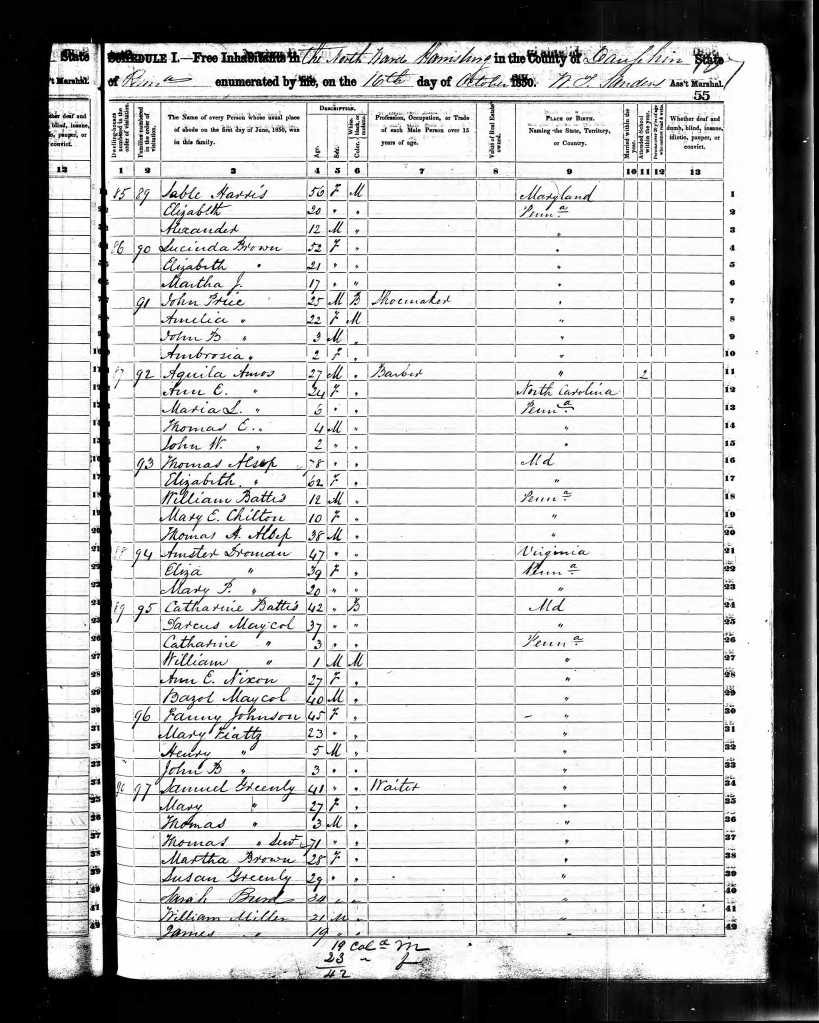 State
SCHEDULE I.—Free Inhabitants in the North Ward Harrisburg in the County of Dauphin State
of Penn a enumerated by me, on the 16th day of October 1850. Ass't Marshal.
't Marshal.
55
DESCRIPTION.
Dwelling-houses numbered in the order of visitation.
Families numbered in the order of visitation.
The Name of every Person whose usual place of abode on the first day of June, 1850, was in this family.
Age.
Sex.
Color, White, black, or mulatto.
Profession, Occupation, or Trade of each Male Person over 15 years of age.
Value of Real Estate owned.
PLACE OF BIRTH. Naming the State, Territory, or Country.
Married within the year.
Attended School within the year.
Persons over 20 y'rs of age who cannot read & write.
Whether deaf and dumb, blind, insane, idiotic, pauper, or convict.
1 2 3 4 5 6 7 8 9 10 11 12 13
85 89 Sable Harris 56 F M Maryland 1
Elizabeth 20 " " Penn a 2
Alexander 12 M " " 3
86 90 Lucinda Brown 52 F " " 4
Elizabeth " 21 " " " 5
Martha J. 17 " " " 6
91 John Price 25 M B Shoemaker " 7
Amelia " 22 F M " 8
John B " 3 M " " 9
Ambrosia " 2 F " " 10
87 92 Aquila Amos 27 M " Barber " 2 11
Ann E. " 24 F " North Carolina 12
Maria L. " 6 " " Penn a 13
Thomas E. " 4 M " " 14
John W. " 2 " " " 15
93 Thomas Alsop 78 " " Md 16
Elizabeth " 62 F " " 17
William Battis 12 M " Penn a 18
Mary E. Chilton 10 F " " 19
Thomas A. Alsop 38 M " " 20
88 94 Amster Droman 47 " " Virginia 21
Eliza " 39 F " Penn a 22
Mary P. " 20 " " " 23
89 95 Catharine Battis 42 " B Md 24
Darcus Maycol 37 " " " 25
Catharine " 3 " " Penn a 26
William " 1 M M " 27
Ann E. Nixon 27 F " " 28
Bazol Maycol 40 M " " 29
96 Fanny Johnson 45 F " " 30
Mary Fiattz 23 " " " 31
Henry " 5 M " " 32
John B " 3 " " " 33
90 97 Samuel Greenly 41 " " Waiter " 34
Mary " 27 F " " 35
Thomas " 3 M " " 36
Thomas " Senr 71 " " " 37
Martha Brown 28 F " " 38
Susan Greenly 29 " " " 39
Sarah 24 " " " 40
William Miller 21 M " " 41
James " 19 " " 42
19 Col d M
23 " f
42